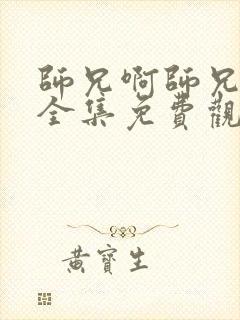 師兄啊師兄
全集免費觀
黃寶生